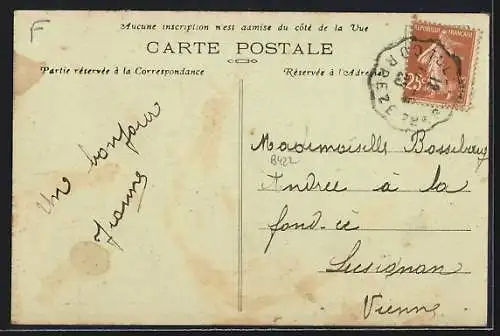 F
Aucune inscription n'est admise du côté de la Vue
CARTE POSTALE
Partie réservée à la Correspondance
Réservée à l'Adresse
REPUBLIQUE FRANÇAISE
25c
CORREZE
Un bonjour
Jeanne
Mademoiselle
B422
Andrée à la
fond-cé
Lusignan
Vienne